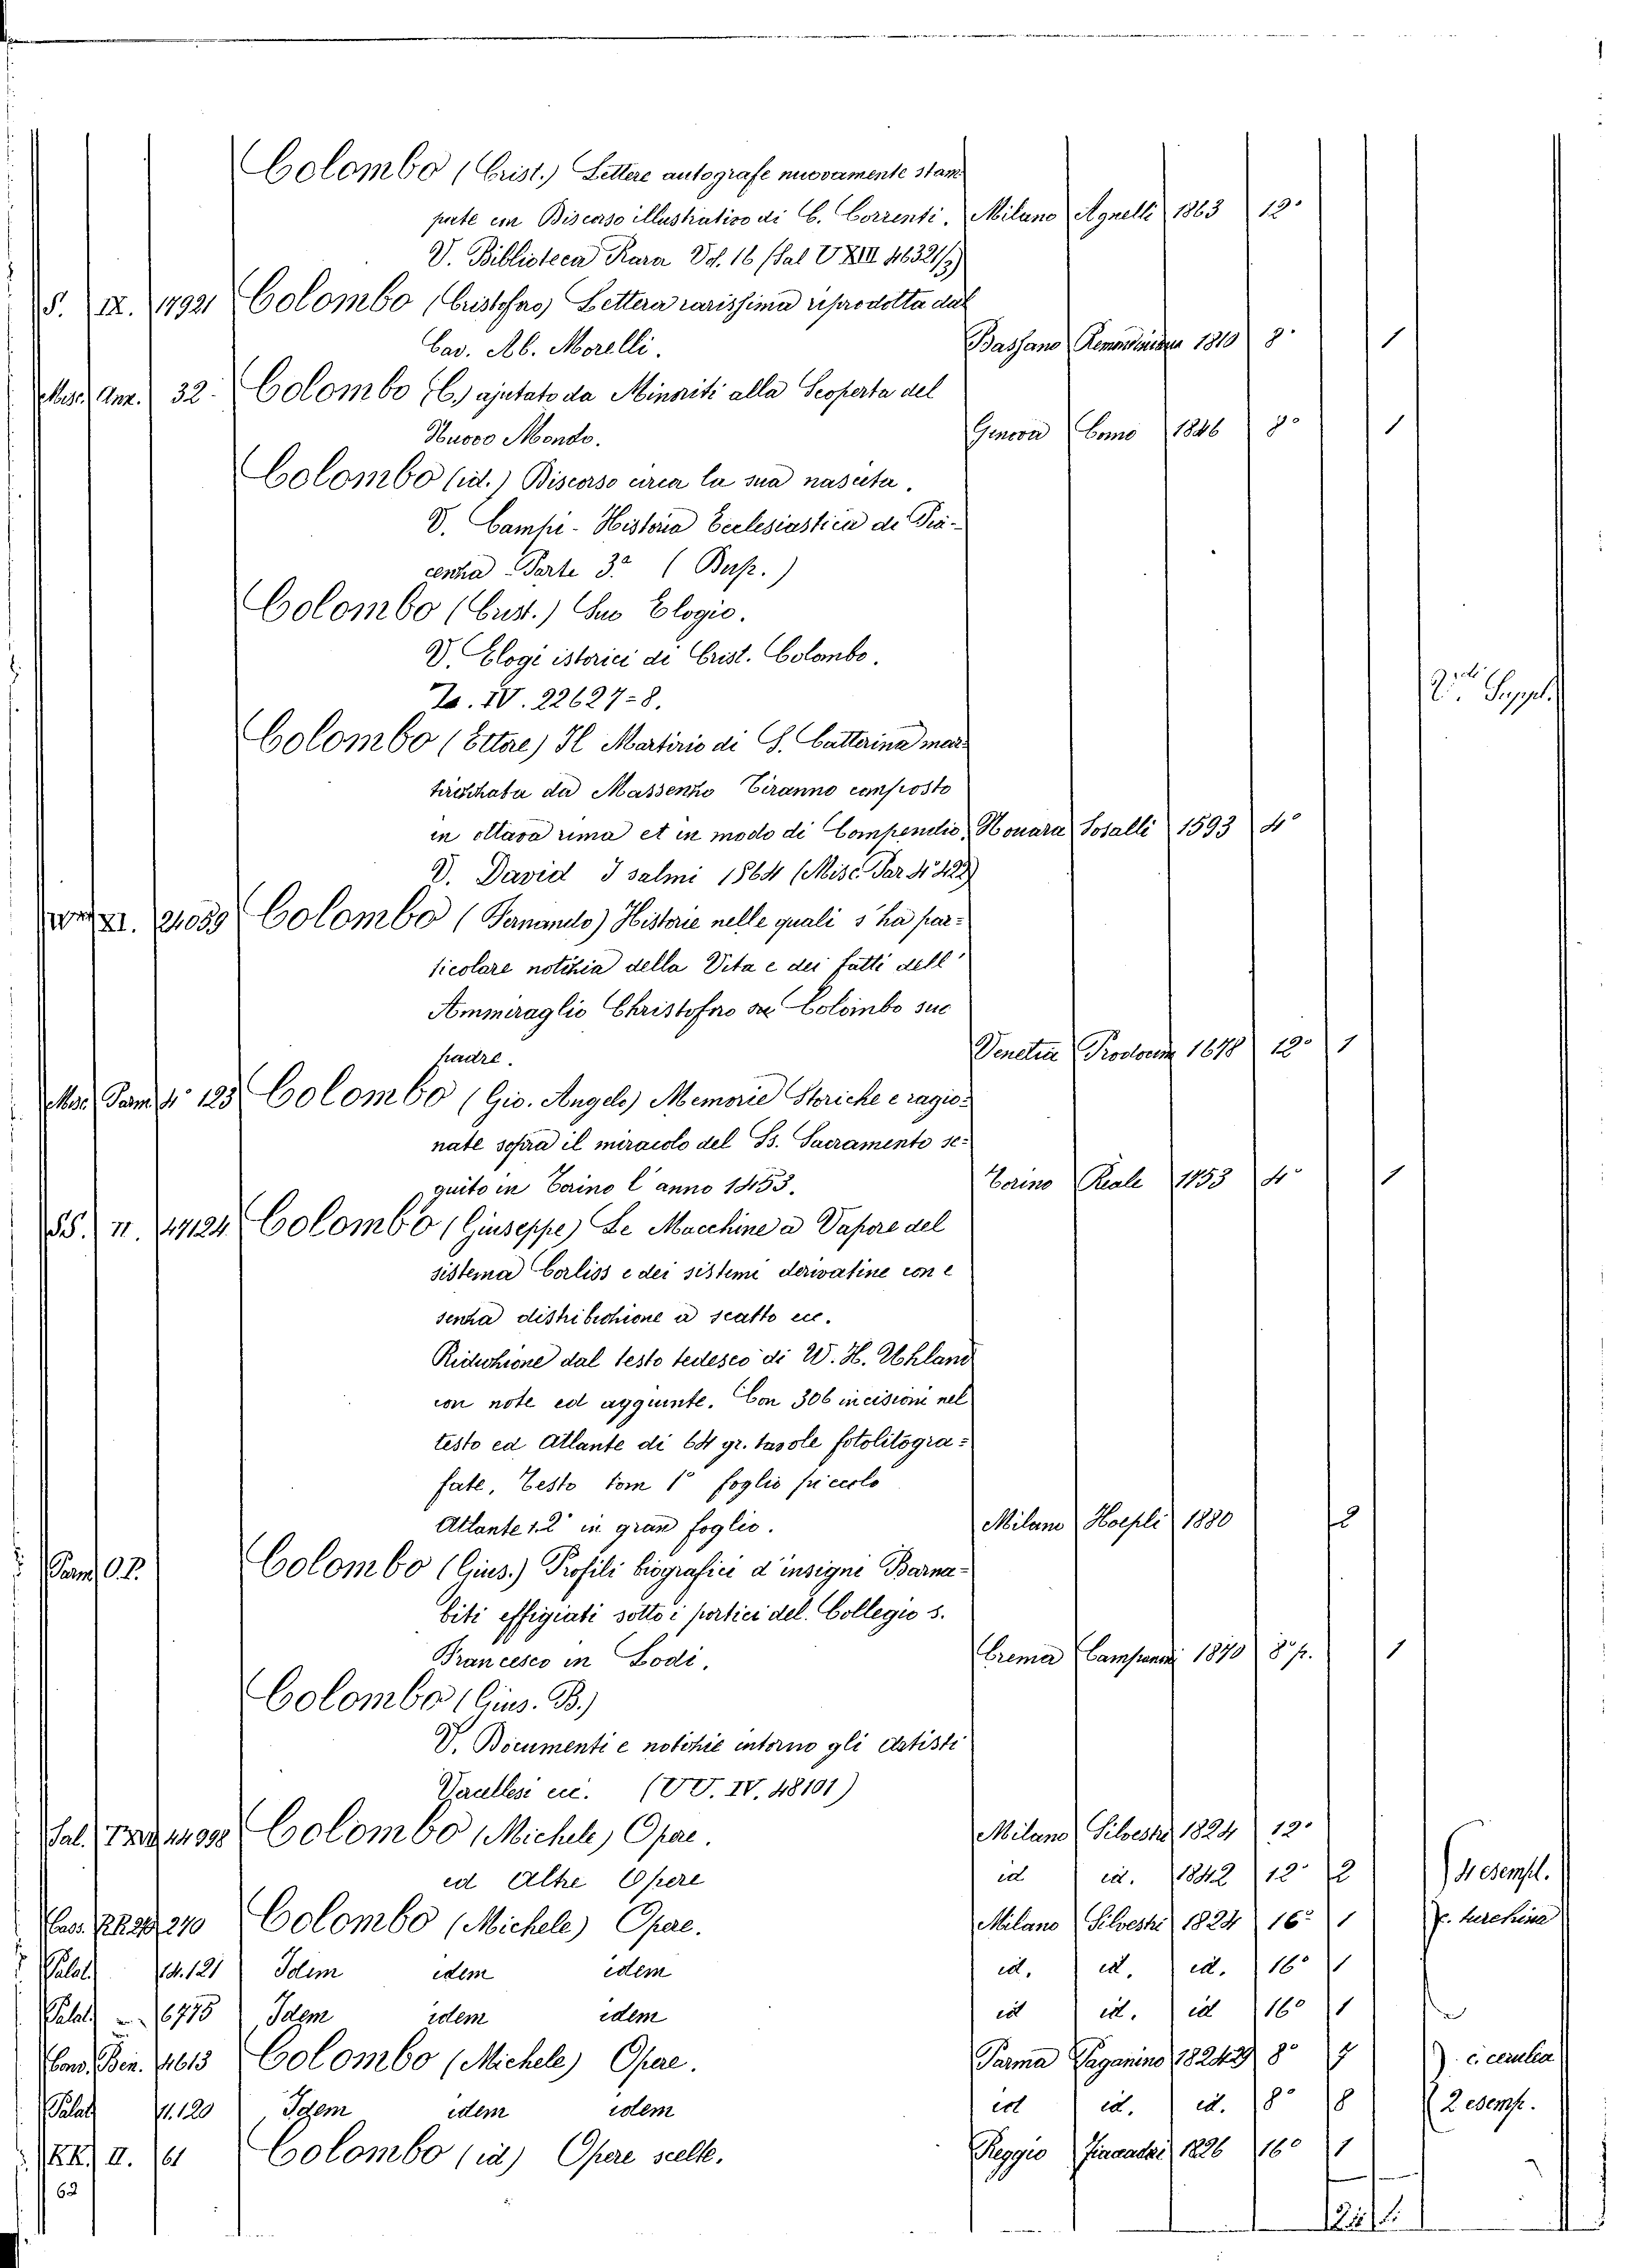 Colombo (Crist.) Lettere autografe nuovamente stam
pate con Discorso illustrativo di C. Correnti. Milano Agnelli 1863 12°
V. Biblioteca Rara Vol. 16 (Sal V XIII 46321/3)
S. IX. 14921 Colombo (Cristoforo) Lettera rarissima riprodotta dal
Cav. Ab. Morelli. Bassano Remondiniana 1810 8° 1
Misc. Ann. 32. Colombo (C.) ajutato da Minoriti alla Scoperta del
Nuovo Mondo. Genova Como 1846 8° 1
Colombo (id.) Discorso circa la sua nascita.
V. Campi - Historia Ecclesiastica di Pia-
cenza - Parte 3ª (Busp.)
Colombo (Crist.) Suo Elogio.
V. Elogi istorici di Crist. Colombo.
IV. 22627-8.
V. Suppl.
Colombo (Ettore) Il Martirio di S. Catterina mar-
tirizzata da Massenzo Tiranno composto
in ottava rima et in modo di Compendio, Nouara Sesalli 1593 4°
V. David I salmi 1564 (Misc. Par 4° 422)
XI. 21059 Colombo (Fernando) Historie nelle quali s'ha par-
ticolare notizia della Vita e dei fatti dell'
Ammiraglio Christoforo Colombo suo
padre. Venetia Prodocimo 1678 12° 1
Misc. Parm. 4° 123 Colombo (Gio. Angelo) Memorie Storiche e ragio-
nate sopra il miracolo del Ss. Sacramento se-
guito in Torino l'anno 1453. Torino Reale 1753 4° 1
SS. II. 47124 Colombo (Giuseppe) Le Macchine a Vapore del
sistema Corliss e dei sistemi derivatine con e
senza distribuzione a scatto ecc.
Riduzione dal testo tedesco di W. H. Uhland
con note ed aggiunte. Con 306 incisioni nel
testo ed Atlante di 64 gr. tavole fotolitogra-
fate, Testo tom 1° foglio piccolo
Atlante t. 2° in gran foglio. Milano Hoepli 1880 2
Parm. O.P. Colombo (Gius.) Profili biografici d'insigni Barna-
biti effigiati sotto i portici del Collegio S.
Francesco in Lodi. Crema Campanini 1870 8° p. 1
Colombo (Gius. B.)
V. Documenti e notizie intorno gli Artisti
Vercellesi ecc. (VV. IV. 48101)
Sal. 14998 Colombo (Michele) Opere. Milano Silvestri 1824 12°
ed Altre Opere id id. 1842 12° 2 4 esempl.
240 Colombo (Michele) Opere. Milano Silvestri 1824 16° 1 c. turchina
Palat. 14.121 Idem idem idem id. id. id. 16° 1
Palat. 16775 Idem idem idem id id. id 16° 1
Cons. Ben. 4613 Colombo (Michele) Opere. Parma Paganino 1824-29 8° 7 c. cerulea
Palat. 11.120 Idem idem idem id id. id. 8° 8 2 esemp.
KK. II. 61 Colombo (id) Opere scelte. Reggio Fiaccadori 1826 16° 1
62